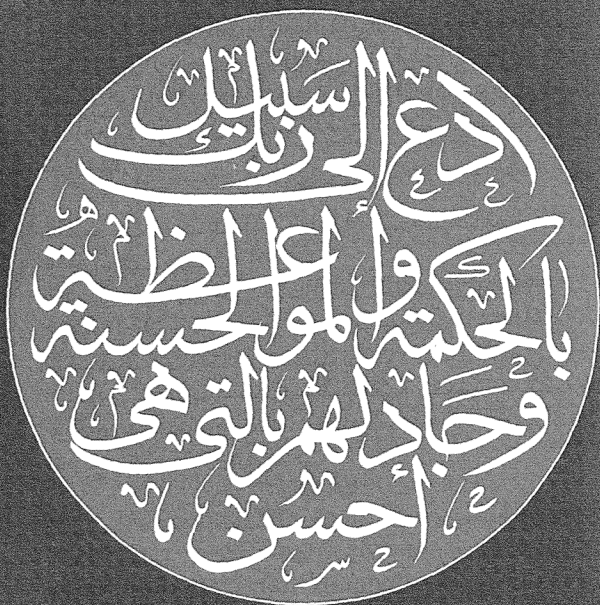 ادع إلى سبيل ربك
بالحكمة والمواعظة الحسنة
وجادلهم بالتي هي
أحسن